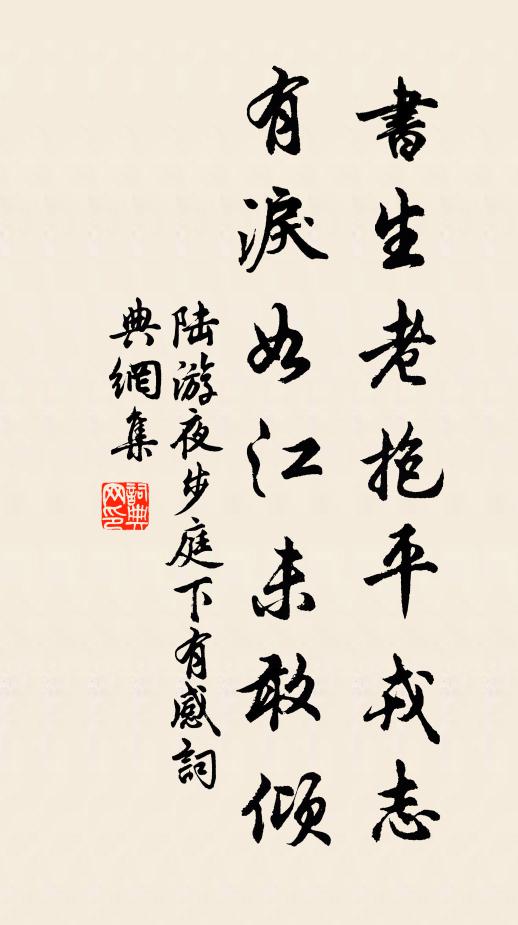 書生老抱平戎志
有淚如江未敢傾
陸游夜步庭下有感詞
典網集
詞典網印